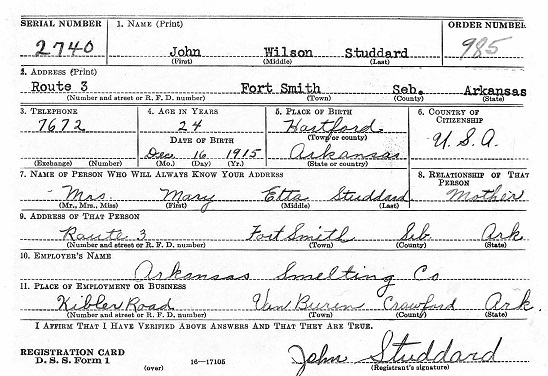 SERIAL NUMBER 1. NAME (Print) ORDER NUMBER
2740 John Wilson Studdard 985
(First) (Middle) (Last)
2. ADDRESS (Print)
Route 3 Fort Smith Seb. Arkansas
(Number and street or R. F. D. number) (Town) (County) (State)
3. TELEPHONE 4. AGE IN YEARS 5. PLACE OF BIRTH 6. COUNTRY OF CITIZENSHIP
7672 24 Hartford U.S.A.
(Town or county)
DATE OF BIRTH
Dec. 16 1915 Arkansas
(Exchange) (Number) (Mo.) (Day) (Yr.) (State or country)
7. NAME OF PERSON WHO WILL ALWAYS KNOW YOUR ADDRESS 8. RELATIONSHIP OF THAT PERSON
Mrs. Mary Etta Studdard Mother
(Mr., Mrs., Miss) (First) (Middle) (Last)
9. ADDRESS OF THAT PERSON
Route 3 Fort Smith Seb. Ark
(Number and street or R. F. D. number) (Town) (County) (State)
10. EMPLOYER'S NAME
Arkansas Smelting Co
11. PLACE OF EMPLOYMENT OR BUSINESS
Kibler Road Van Buren Crawford Ark.
(Number and street or R. F. D. number) (Town) (County) (State)
I AFFIRM THAT I HAVE VERIFIED ABOVE ANSWERS AND THAT THEY ARE TRUE.
REGISTRATION CARD
D. S. S. Form 1 16—17105 John Studdard
(over) (Registrant's signature)